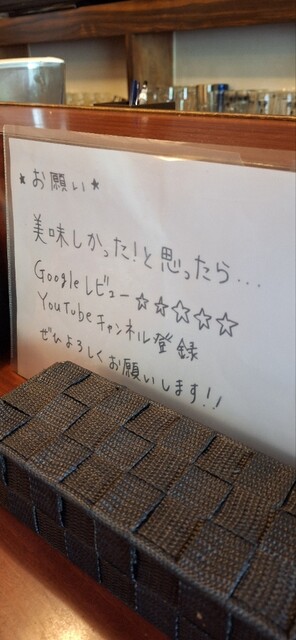 ★お願い★
美味しかった!と思ったら...
Googleレビュー☆☆☆☆☆
YouTubeチャンネル登録
ぜひよろしくお願いします!!